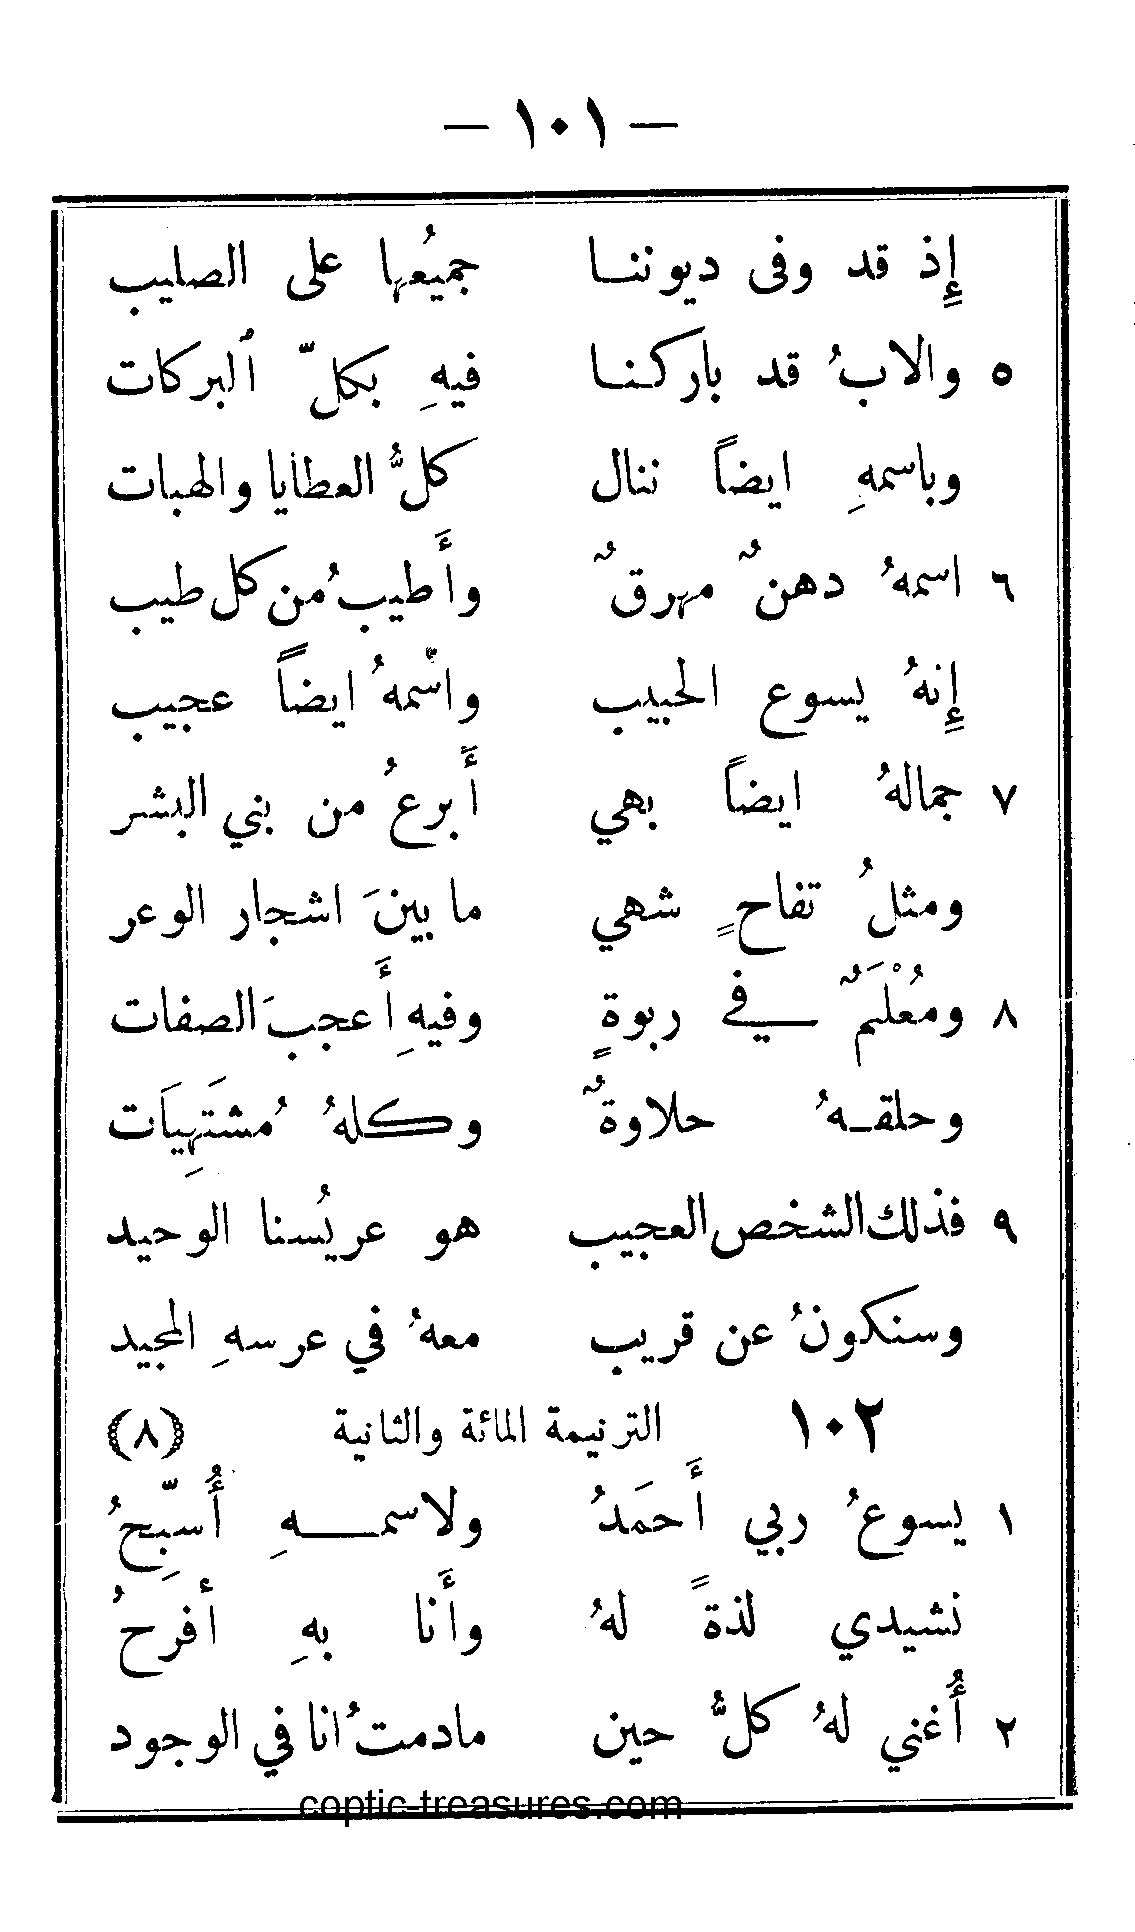 — ١٠١ —
إِذ قد وفى ديوننـا جميعُها على الصليب
٥ والابُ قد باركـنـا فيهِ بكلّ البركات
وباسمهِ ايضاً ننال كلُّ العطايا والهبات
٦ اسمهُ دهنٌ مهرقٌ وأَطيبُ من كل طيب
إِنهُ يسوع الحبيب واسمهُ ايضاً عجيب
٧ جمالهُ ايضاً بهي أَبرعُ من بني البشر
ومثلُ تفاحٍ شهي ما بينَ اشجار الوعر
٨ ومُعْلَمٌ في ربوةٍ وفيهِ أَعجبَ الصفات
وحلقـهُ حلاوةٌ وكلهُ مُشتَهِيَات
٩ فذلك الشخص العجيب هو عريُسنا الوحيد
وسنكونُ عن قريب معهُ في عرسهِ المجيد
١٠٢ الترنيمة المائة والثانية (٨)
١ يسوعُ ربي أَحمَدُ ولاسمـــهِ أُسبّحُ
نشيدي لذةً لهُ وأَنا بهِ أفرحُ
٢ أُغني لهُ كلُّ حين مادمتُ انا في الوجود
coptic-treasures.com